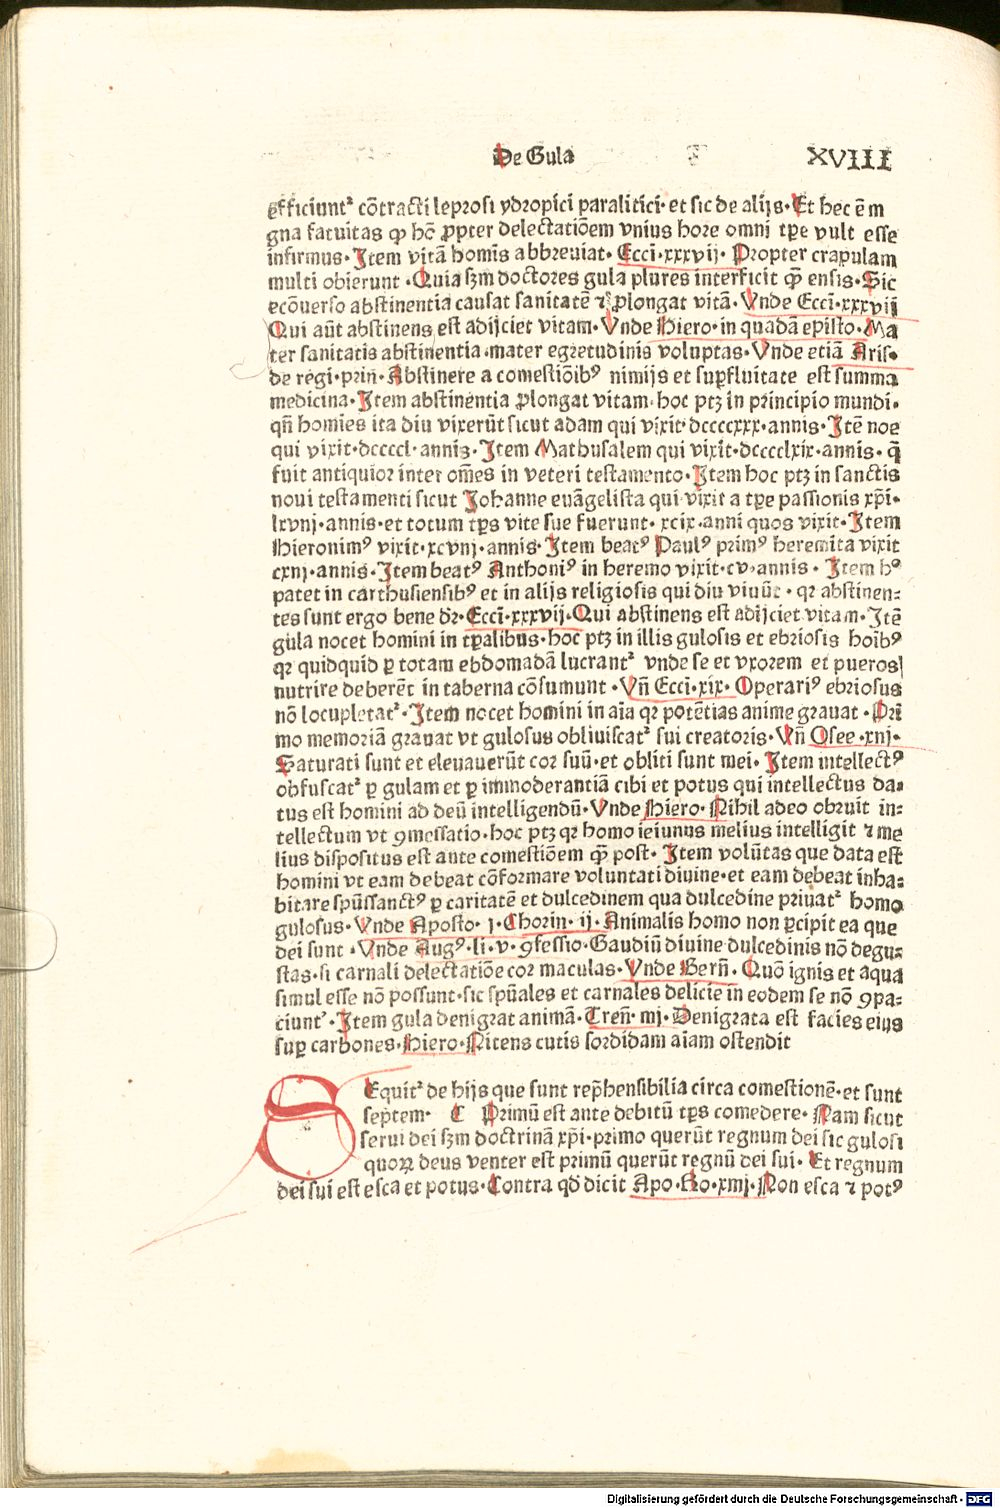 De Gula
XVIII
efficiunt² cõtracti leprosi ydropici paralitici· et sic de alijs· Et hec ẽ m
gna fatuitas ꝙ hõ ꝓpter delectatiõem vnius hore omni tꝑe vult esse
infirmus· Item vitã homis abbreuiat· Ecci· xxxvij· Propter crapulam
multi obierunt · Quia ẜm doctores gula plures interficit ꝙ̃ ensis· Sic
ecõuerso abstinentia causat sanitatẽ ⁊ ꝓlongat vitã· Vnde Ecci· xxxvij
Qui aũt abstinens est adijciet vitam· Vnde Hiero· in quadã episto· Ma
ter sanitatis abstinentia· mater egretudinis voluptas· Vnde etiã Aris·
de regi· prin̄· Abstinere a comestiõibꝰ nimijs et suꝑfluitate est summa
medicina· Item abstinentia ꝓlongat vitam· hoc ptꝫ in principio mundi·
qñ homĩes ita diu vixerũt sicut adam qui vixit· dccccxxx· annis· Itẽ noe
qui vixit· dccccl· annis· Item Mathusalem qui vixit· dcccclxix· annis· q̃
fuit antiquior inter oẽs in veteri testamento· Item hoc ptꝫ in sanctis
noui testamenti sicut Johanne euãgelista qui vixit a tꝑe passionis xp̃i·
lxvnj· annis· et totum tp̃s vite sue fuerunt· xcix· anni quos vixit· Item
Hieronimꝰ vixit· xcvnj· annis· Item beatꝰ Paulꝰ primꝰ heremita vixit
cxnj· annis· Item beatꝰ Anthoniꝰ in heremo vixit· cv· annis· Item hꝰ
patet in carthusiensibꝰ et in alijs religiosis qui diu viuũt · qꝛ abstinen⸗
tes sunt ergo bene dꝛ· Ecci· xxxvij· Qui abstinens est adijciet vitam· Itẽ
gula nocet homini in tꝑalibus· hoc ptꝫ in illis gulosis et ebriosis hoĩbꝰ
qꝛ quidquid ꝑ totam ebdomadã lucrant² vnde se et vxorem et pueros
nutrire deberẽt in taberna cõsumunt · Vñ Ecci· xix· Operariꝰ ebriosus
nõ locupletat²· Item nocet homini in aĩa qꝛ potẽtias anime grauat · Pri
mo memoriã grauat vt gulosus obliuiscat² sui creatoris· Vñ Osee · xnj·
Saturati sunt et eleuauerũt cor suũ· et obliti sunt mei· Item intellectꝰ
obfuscat² ꝑ gulam et ꝑ immoderantiã cibi et potus qui intellectus da⸗
tus est homini ad deũ intelligendũ· Vnde Hiero· Nihil adeo obruit in⸗
tellectum vt ꝯmessatio· hoc ptꝫ qꝛ homo ieiunus melius intelligit ⁊ me
lius dispositus est ante comestiõem ꝙ̃ post· Item volũtas que data est
homini vt eam debeat cõformare voluntati diuine· et eam debeat inha⸗
bitare spũssanctꝰ ꝑ caritatẽ et dulcedinem qua dulcedine priuat² homo
gulosus· Vnde Aposto· j· Chorin· ij· Animalis homo non ꝑcipit ea que
dei sunt · Vnde Augꝰ· li· v· ꝯfessio· Gaudiũ diuine dulcedinis nõ degu⸗
stas· si carnali delectatiõe cor maculas· Vnde Berñ· Quõ ignis et aqua
simul esse nõ possunt· sic spũales et carnales delicie in eodem se nõ ꝯpa⸗
ciunt²· Item gula denigrat animã· Treñ· mj· Denigrata est facies eius
suꝑ carbones· Hiero· Nitens cutis sordidam aĩam ostendit
SEquit² de hijs que sunt rep̃hensibilia circa comestionẽ· et sunt
septem· ⸿ Primũ est ante debitũ tp̃s comedere· Nam sicut
serui dei ẜm doctrinã xp̃i· primo querũt regnum dei sic gulosi
quoꝝ deus venter est primũ querũt regnũ dei sui· Et regnum
dei sui est esca et potus· Contra qđ dicit Apo· Ro· xmj· Non esca ⁊ potꝰ
Digitalisierung gefördert durch die Deutsche Forschungsgemeinschaft - DFG